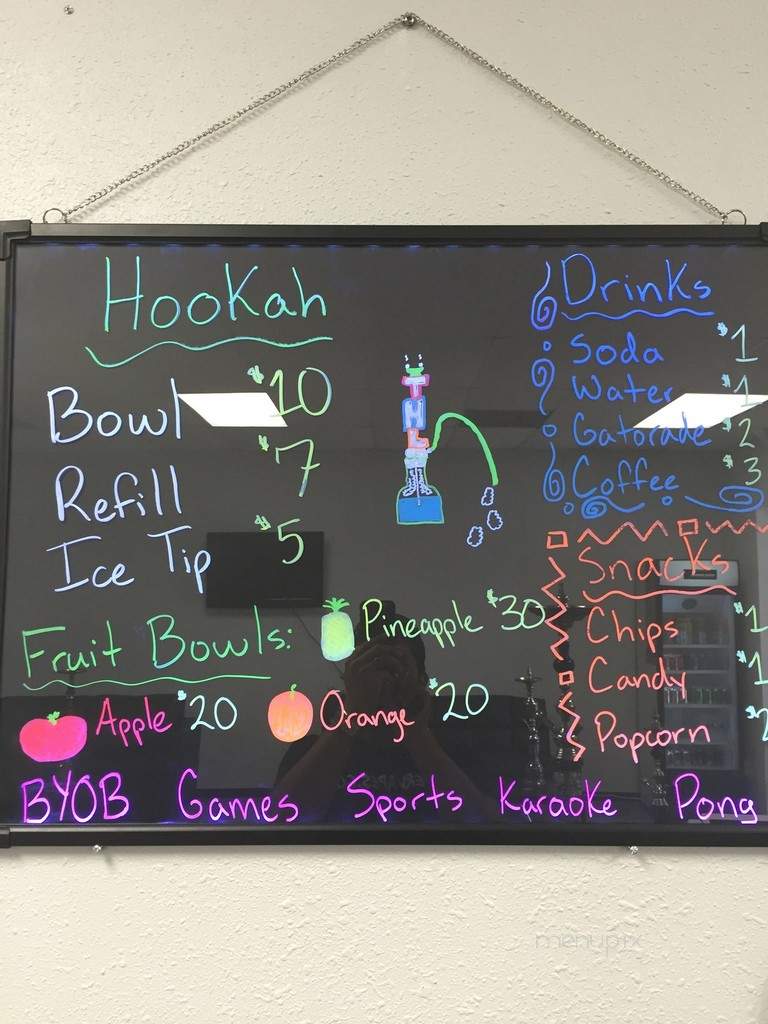 Hookah
Bowl $10
Refill $7
Ice Tip $5
Fruit Bowls: Pineapple $30
Apple $20 Orange $20
Drinks
Soda $1
Water $1
Gatorade $2
Coffee $3
Snacks
Chips $1
Candy $1
Popcorn
BYOB Games Sports Karaoke Pong
menupix